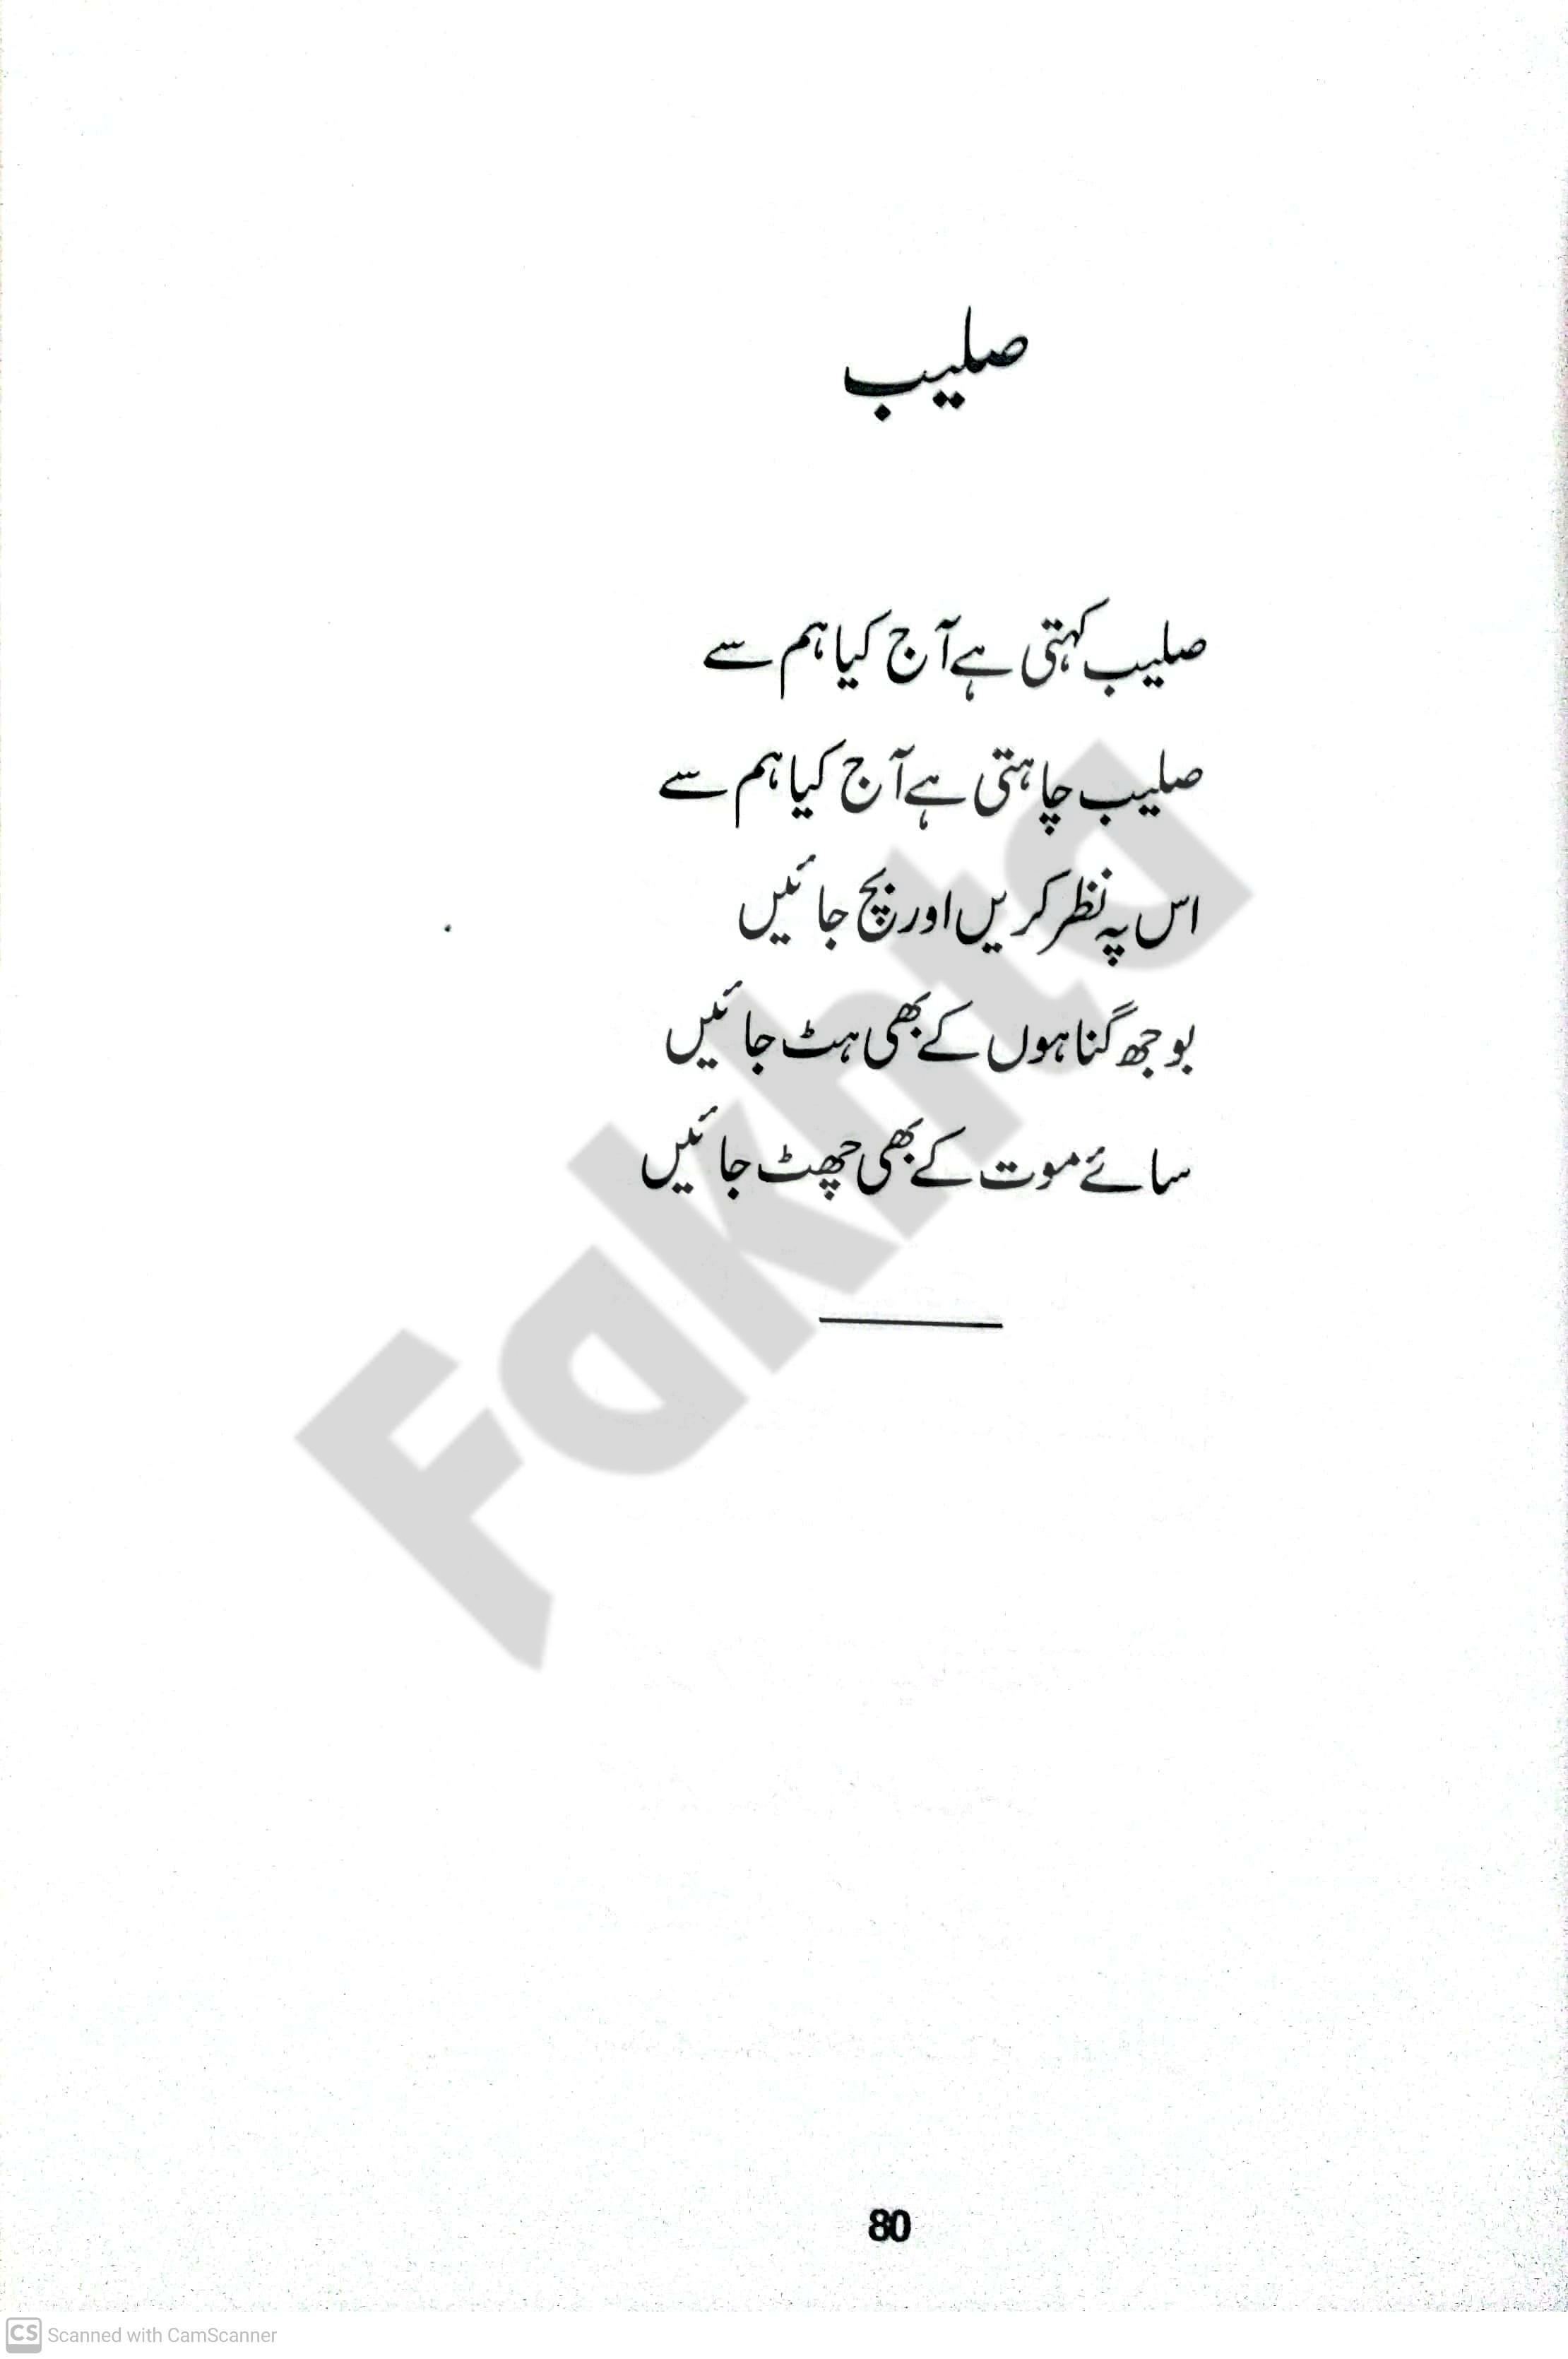 صلیب
صلیب کہتی ہے آج کیا ہم سے
صلیب چاہتی ہے آج کیا ہم سے
اس پہ نظر کریں اور بچ جائیں
بوجھ گناہوں کے بھی ہٹ جائیں
سائے موت کے بھی چھٹ جائیں
Fakhta
80
CS Scanned with CamScanner